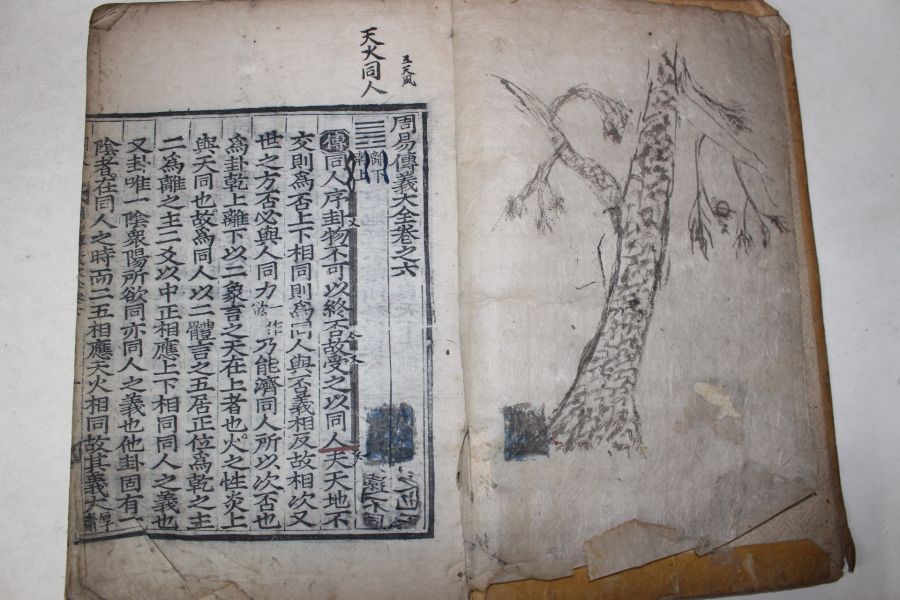 天火同人
周易傳義大全卷之六
離下
乾上
傳同人序卦物不可以終否故受之以同人夫天地不
交則爲否上下相同則爲同人與否義相反故相次又
世之方否必與人同力 一作 乃能濟同人所以次否也
爲卦乾上離下以二象言之天在上者也火之性炎上
與天同也故爲同人以二體言之五居正位爲乾之主
二爲離之主二爻以中正相應上下相同同人之義也
又卦唯一陰衆陽所欲同亦同人之義也他卦固有一
陰者在同人之時而二五相應天火相同故其義大